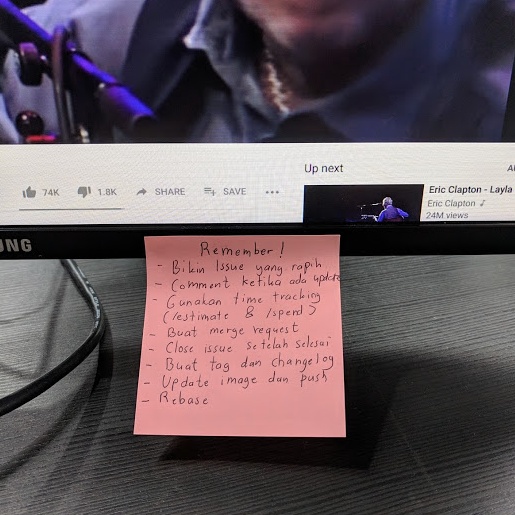 74K 1.8K SHARE SAVE
Up next
Eric Clapton - Layla
Eric Clapton
24M views
UNG
Remember!
- Bikin Issue yang rapih
- Comment ketika ada update
- Gunakan time tracking
(/estimate & /spend)
- Buat merge request
- Close issue setelah selesai
- Buat tag dan changelog
- Update image dan push
- Rebase